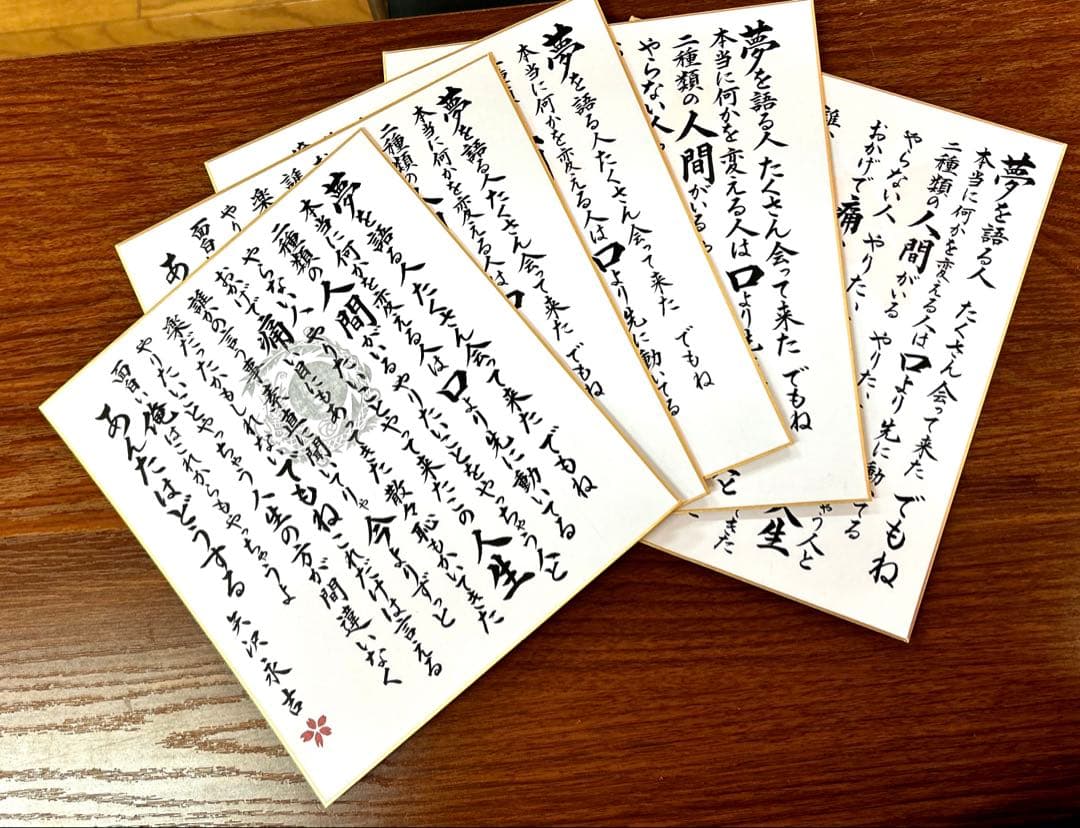 夢を語る人たくさん会って来たでもね
本当に何かを変える人は口より先に動いてる
二種類の人間がいるやりたいことをやっちゃう人と
やらない人 やりたいことやって来たこの人生
おかげで痛い目にもあってきた散々恥もかいてきた
誰かの言う事素直に聞いてりゃ今よりずっと
楽だったかもしれないでもねこれだけは言える
やりたいことやっちゃう人生の方が間違いなく
面白い俺はこれからもやっちゃうよ
あんたはどうする 矢沢永吉
夢を語る人たくさん会って来たでもね
本当に何かを変える人は口
二種類の人
誰
楽
やり
面白
あ
夢を語る人たくさん会って来た でもね
本当に何かを変える人は口より先に動いてる
夢を語る人 たくさん会って来た でもね
本当に何かを変える人は口より先
二種類の人間がいる
やらない人
夢を語る人 たくさん会って来た でもね
本当に何かを変える人は口より先に動いてる
二種類の人間がいる やりた ゃう人と
やらない人 やりたい 人生
おかげで痛 てきた